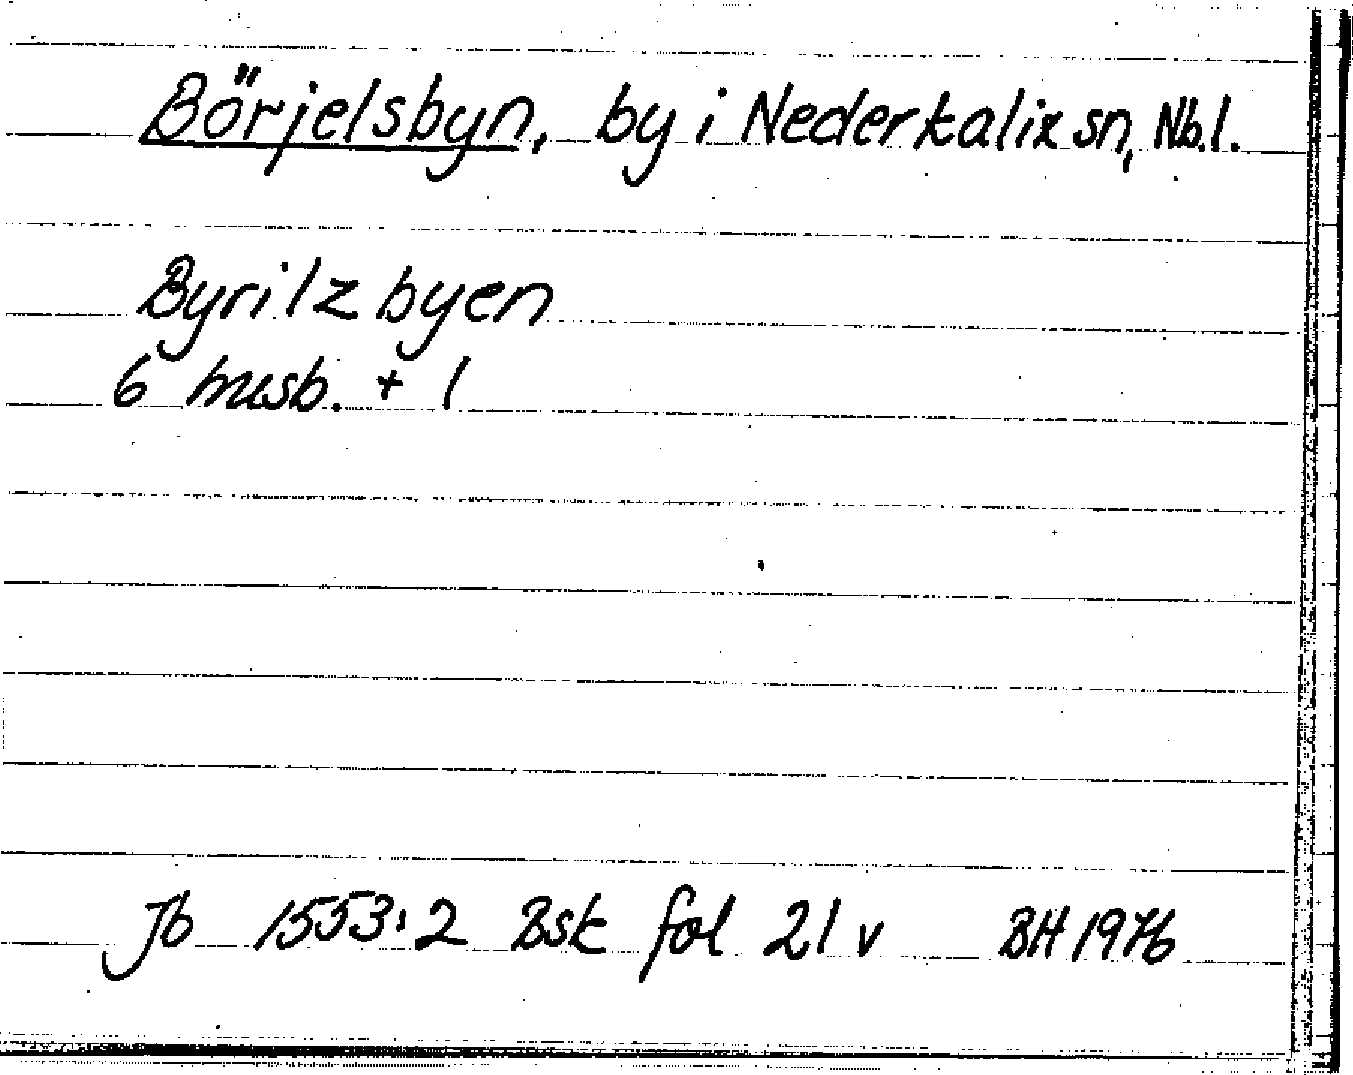 Börjelsbyn, by i Nederkalix sn, Nb.l.
Byrilzbyen
6 husb. + 1
Jb 1553:2 Bsk fol 21 v BH 1976